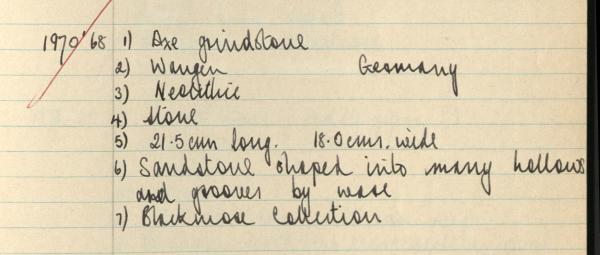 1970'68 1) Axe grindstone
2) Wangen Germany
3) Neolithic
4) Stone
5) 21.5 cms long. 18.0 cms. wide
6) Sandstone shaped into many hollows
and grooves by wear
7) Blackmore Collection